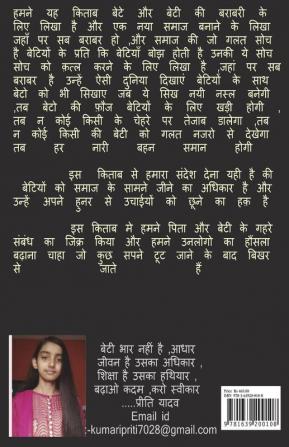 हमने यह किताब बेटे और बेटी की बराबरी के
लिए लिखा है और एक नया समाज बनाने के लिखा
जहाँ पर सब बराबर हो ,और समाज की जो गलत सोच
है बेटियों के प्रति कि बेटियाँ बोझ होती है उनकी ये सोच
सोच को कत्ल करने के लिए लिखा है ,जहां पर सब
बराबर है उन्हें ऐसी दुनिया दिखाएं बेटियों के साथ
बेटो को भी सिखाए जब ये सिख नयी नस्ल बनेगी
,तब बेटो की फ़ौज बेटियों के लिए खड़ी होगी ,
तब न कोई किसी के चेहरे पर तेजाब डालेगा ,तब
न कोई किसी की बेटी को गलत नजरो से देखेगा
तब हर नारी बहन समान होगी
इस किताब से हमारा संदेश देना यही है की
बेटियों को समाज के सामने जीने का अधिकार है और
उन्हें अपने हुनर से उचाईयों को छूने का हक़ है
इस किताब मे हमने पिता और बेटी के गहरे
संबंध का जिक्र किया और हमने उनलोगो का हौंसला
बढ़ाना चाहा जो कुछ सपने टूट जाने के बाद बिखर
से जाते हैं
बेटी भार नहीं है ,आधार
जीवन है उसका अधिकार ,
शिक्षा है उसका हथियार ,
बढ़ाओ कदम ,करो स्वीकार
.....प्रीति यादव
Email id
:-kumaripriti7028@gmail.com
9 781639 200108